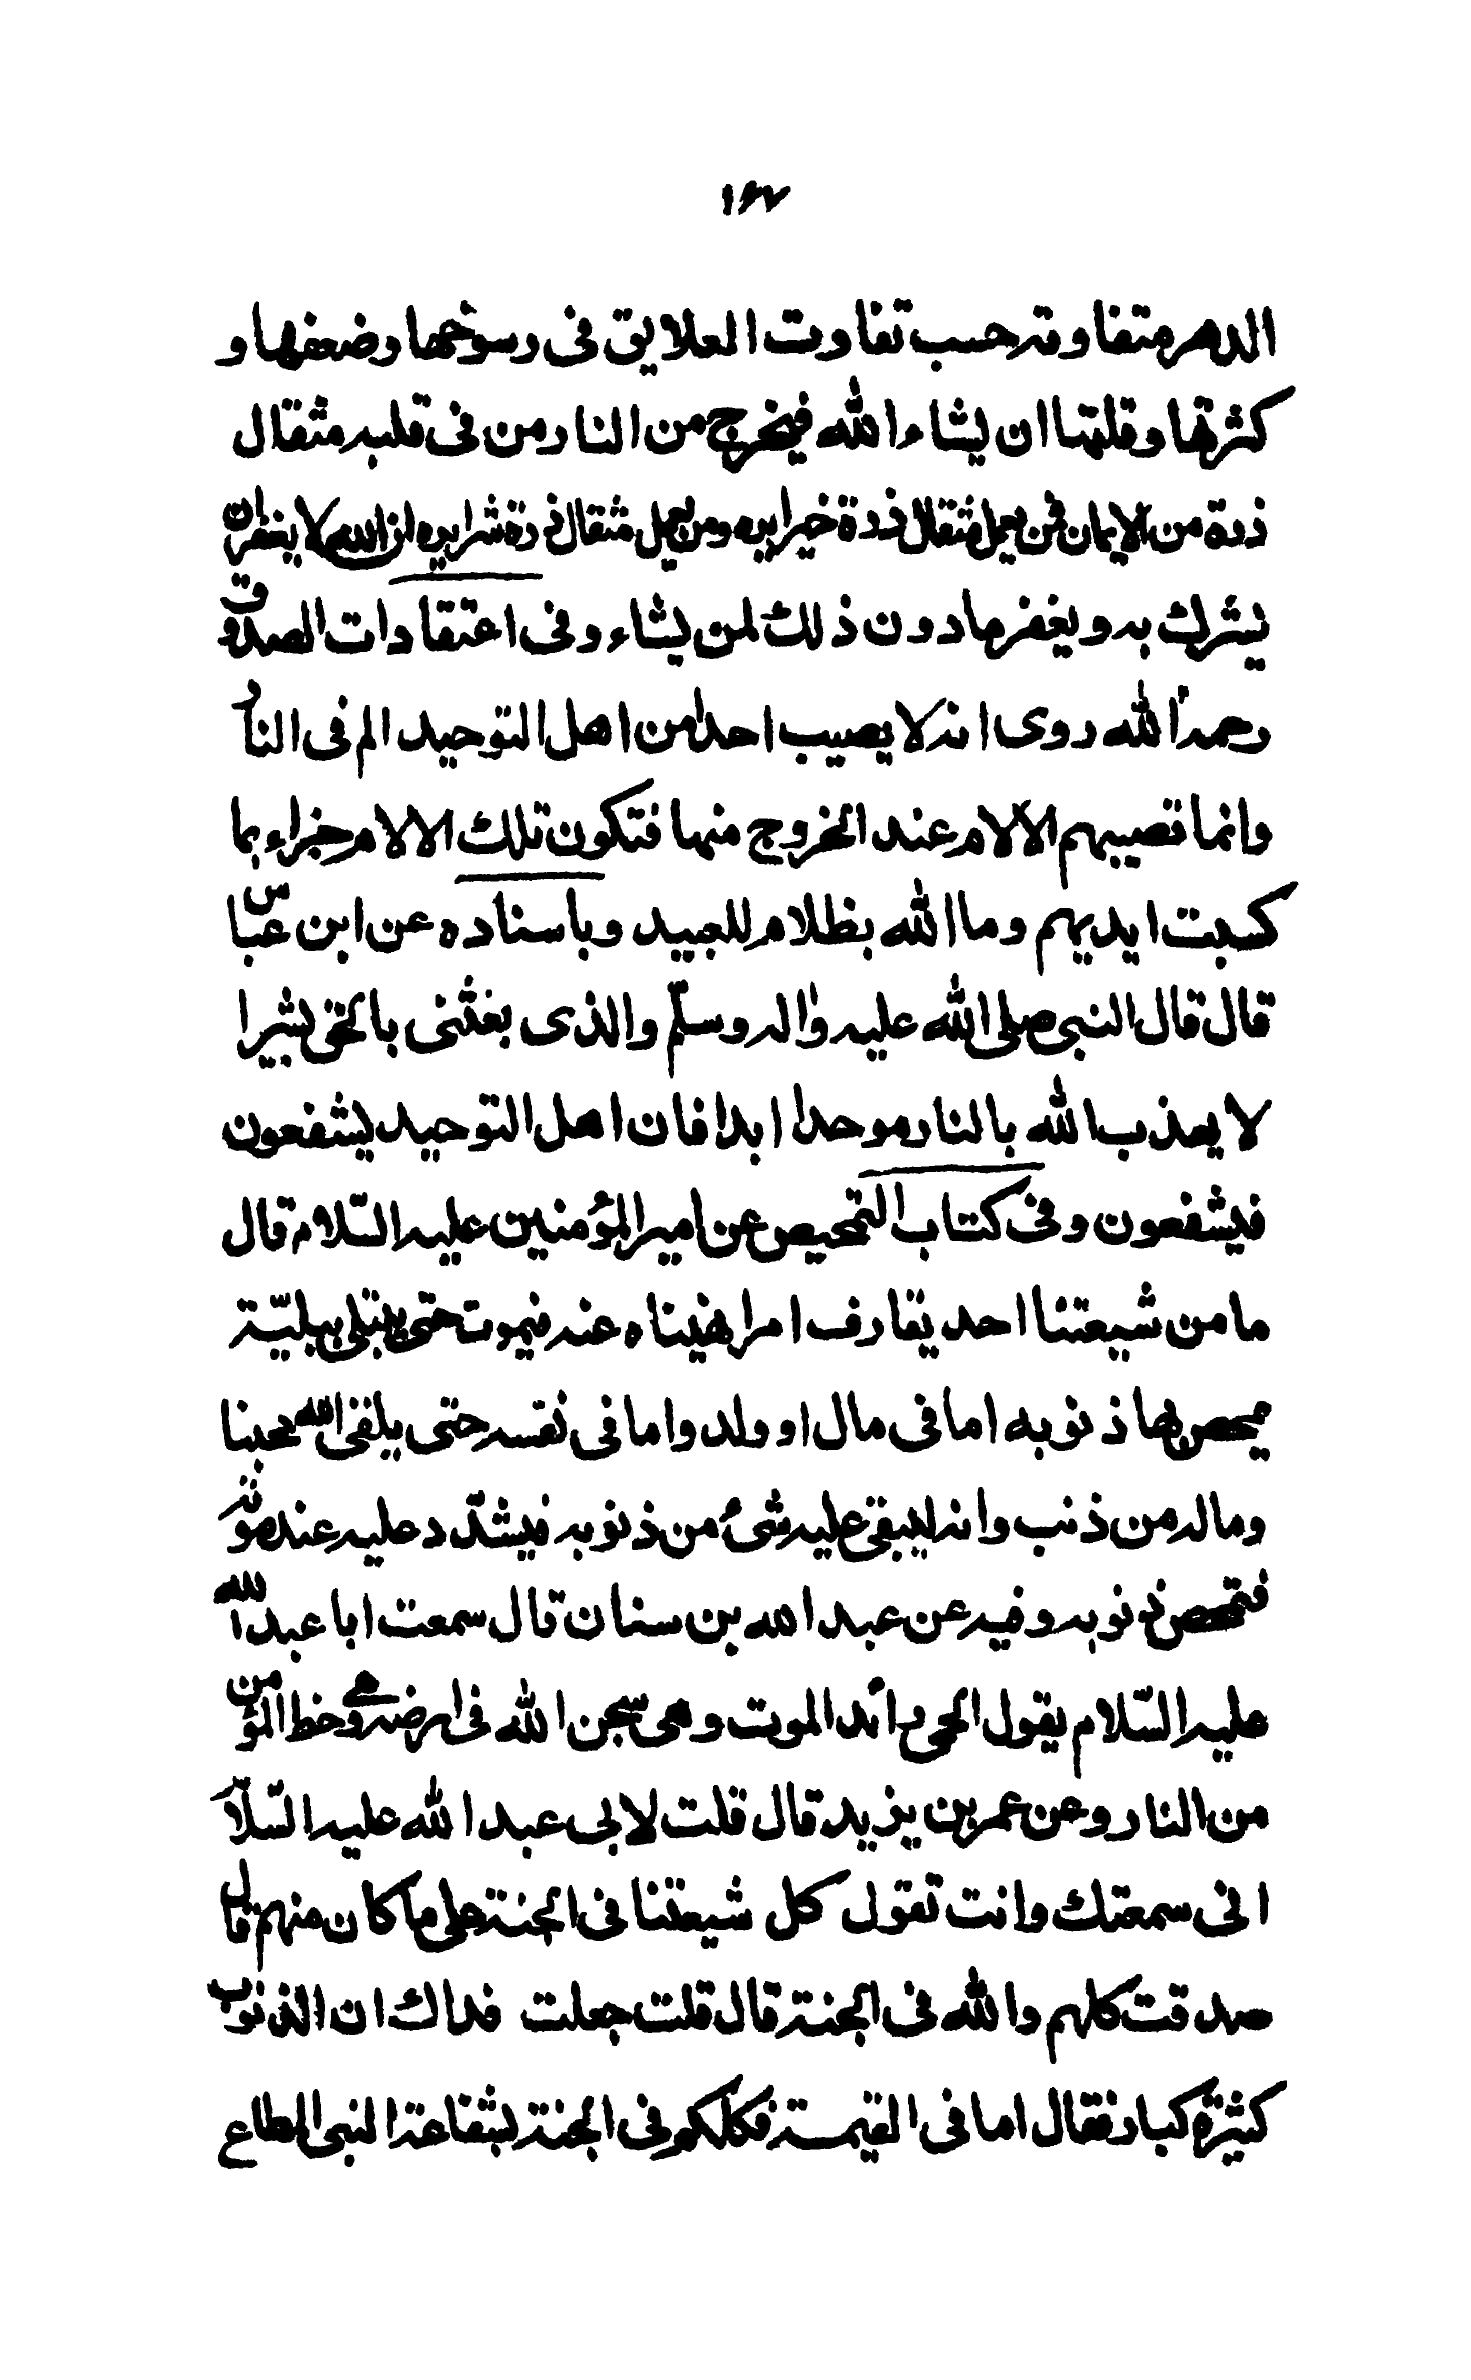 ١۶٧
الدهر متفاوتة حسب تفاوت العلايق فى رسوخها وضعفها و
كثرتها وقلتها ان يشاء الله فيخرج من النار من فى قلبه مثقال
ذرة من الايمان فمن يعمل مثقال ذرة خيرا يره ومن يعمل مثقال ذرة شرا يره ان الله لا يغفر ان
يشرك به ويغفر مادون ذلك لمن يشاء وفى اعتقادات الصدوق
رحمه الله روى انه لا يصيب احدا من اهل التوحيد الم فى النار
وانما تصيبهم الالام عند الخروج منها فتكون تلك الالام جزاء بما
كسبت ايديهم وما الله بظلام للعبيد وباسناده عن ابن عبّاس
قال قال النبى صلى الله عليه واله وسلّم والذى بعثنى بالحق بشيرا
لا يعذب الله بالنار موحدا ابدا فان اهل التوحيد ليشفعون
فيشفعون وفى كتاب التمحيص عن امير المؤمنين عليه السّلام قال
ما من شيعتنا احد يقارف امرا نهيناه عنه فيموت حتى يبتلى ببليّة
يمحص بها ذنوبه اما فى مال او ولد واما فى نفسه حتى يلقى الله محبنا
وماله من ذنب وانه ليبقى عليه شئ من ذنوبه فيشدّد عليه عند موته
فتمحص ذنوبه وفيه عن عبد الله بن سنان قال سمعت ابا عبد الله
عليه السّلام يقول الحمى رائد الموت وهى سجن الله فى ارضه وهى حظ المؤمن
من النار وعن عمر بن يزيد قال قلت لابى عبد الله عليه السّلام
انى سمعتك وانت تقول كل شيعتنا فى الجنة على ما كان منهم قال
صدقت كلهم والله فى الجنة قال قلت جعلت فداك ان الذنوب
كثيرة كبار فقال اما فى القيمة فكلكم فى الجنة بشفاعة النبى المطاع